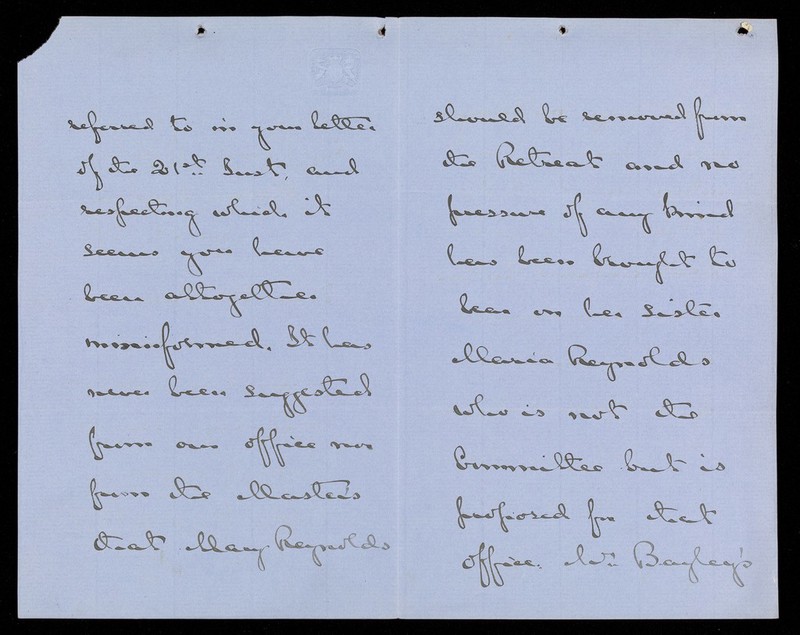 referred to in your letter
of the 21st Inst, and
respecting which it
seems you have
been altogether
misinformed. It has
never been suggested
from our office nor
from the Master's
that Mary Reynolds
should be removed from
the Retreat and no
pressure of any kind
has been brought to
bear on her sister
Maria Reynolds
who is not the
Committee but is
proposed for that
office. Mr. Bayley's